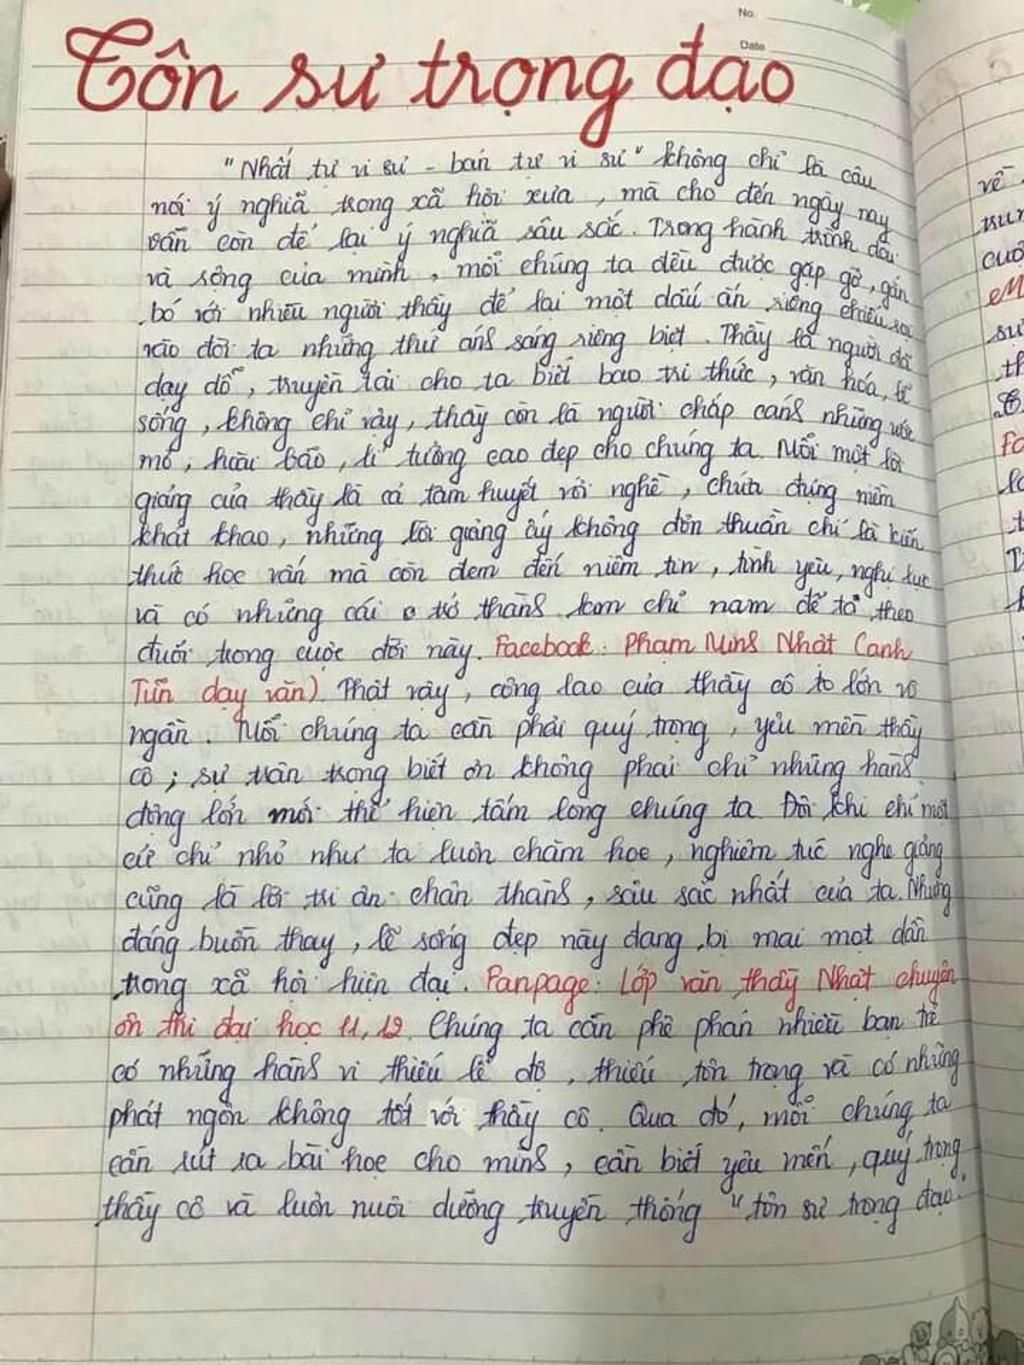 No.
Date
Tôn sư trọng đạo
"Nhất tự vi sư - bán tự vi sư" không chỉ là câu
nói ý nghĩa trong xã hội xưa, mà cho đến ngày nay
vẫn còn để lại ý nghĩa sâu sắc. Trong hành trình dài
và sống của mình, mỗi chúng ta đều được gặp gỡ, gắn
bó với nhiều người thầy để lại một dấu ấn riêng chiếu rọi
vào đời ta những thứ ánh sáng riêng biệt. Thầy là người đã
dạy dỗ, truyền tải cho ta biết bao tri thức, văn hóa, lẽ
sống, không chỉ vậy, thầy còn là người chắp cánh những ước
mơ, hoài bão, lí tưởng cao đẹp cho chúng ta. Mỗi một lời
giảng của thầy là cả tâm huyết với nghề, chứa đựng niềm
khát khao, những lời giảng ấy không đơn thuần chỉ là kiến
thức học vấn mà còn đem đến niềm tin, tình yêu, nghị lực
và có những cái trở thành kim chỉ nam để ta theo
đuổi trong cuộc đời này. Facebook: Phạm Minh Nhật (Canh
Tuấn dạy văn) Thật vậy, công lao của thầy cô to lớn vô
ngần. Mỗi chúng ta cần phải quý trọng, yêu mến thầy
cô; sự trân trọng biết ơn không phải chỉ những hành
động lớn mới thể hiện tấm lòng chúng ta. Đôi khi chỉ một
cử chỉ nhỏ như ta luôn chăm học, nghiêm túc nghe giảng
cũng là lời tri ân chân thành, sâu sắc nhất của ta. Nhưng
đáng buồn thay, lẽ sống đẹp này đang bị mai một dần
trong xã hội hiện đại. Fanpage: Lớp văn thầy Nhật chuyên
ôn thi đại học 11, 12. Chúng ta cần phê phán nhiều bạn trẻ
có những hành vi thiếu lễ độ, thiếu tôn trọng và có những
phát ngôn không tốt với thầy cô. Qua đó, mỗi chúng ta
cần rút ra bài học cho mình, cần biết yêu mến, quý trọng
thầy cô và luôn nuôi dưỡng truyền thống "tôn sư trọng đạo".